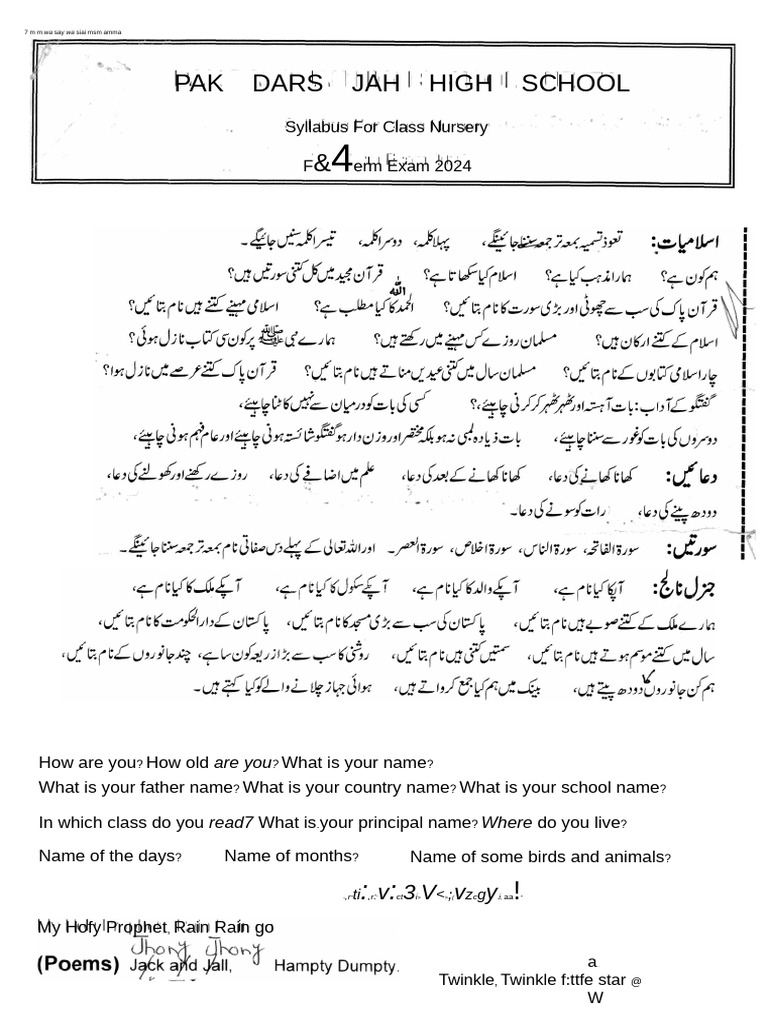 7 m m wa say wa siai msm amma
PAK DARS JAH HIGH SCHOOL
Syllabus For Class Nursery
F&4erm Exam 2024
اسلامیات: تعوذ تسمیہ بمعہ ترجمعہ سننا جائینگے، پہلا کلمہ، دوسرا کلمہ، تیسرا کلمہ سنیں جائیگے۔
ہم کون ہے؟ ہمارا مذہب کیا ہے؟ اسلام کیا سکھاتا ہے؟ قرآن مجید میں کل کتنی سورتیں ہیں؟
قرآن پاک کی سب سے چھوٹی اور بڑی سورت کا نام بتائیں؟ الحمد اللہ کا کیا مطلب ہے؟ اسلامی مہینے کتنے ہیں نام بتائیں؟
اسلام کے کتنے ارکان ہیں؟ مسلمان روزے کس مہینے میں رکھتے ہیں؟ ہمارے نبی ﷺ پر کون سی کتاب نازل ہوئی؟
چار اسلامی کتابوں کے نام بتائیں؟ مسلمان سال میں کتنی عیدیں مناتے ہیں نام بتائیں؟ قرآن پاک کتنے عرصے میں نازل ہوا؟
گفتگو کے آداب: بات آہستہ اور ٹھہر ٹھہر کر کرنی چاہیئے،؟ کسی کی بات کو درمیان سے نہیں کاٹنا چاہیئے،
دوسروں کی بات کو غور سے سننا چاہیئے، بات ذیادہ لمبی نہ ہو بلکہ مختصر اور وزن دار ہو گفتگو شائستہ ہونی چاہیئے اور عام فہم ہونی چاہیئے،
دعائیں: کھانا کھانے کی دعا، کھانا کھانے کے بعد کی دعا، علم میں اضافے کی دعا، روزے رکھنے اور کھولنے کی دعا،
دودھ پینے کی دعا، رات کو سونے کی دعا۔
سورتیں: سورۃ الفاتحہ، سورۃ الناس، سورۃ اخلاص، سورۃ العصر۔ اور اللہ تعالی کے پہلے دس صفاتی نام بمعہ ترجمعہ سننا جائینگے۔
جنرل نالج: آپکا کیا نام ہے، آپکے والد کا کیا نام ہے، آپکے سکول کا کیا نام ہے، آپکے ملک کا کیا نام ہے،
ہمارے ملک کے کتنے صوبے ہیں نام بتائیں، پاکستان کی سب سے بڑی مسجد کا نام بتائیں، پاکستان کے دارالحکومت کا نام بتائیں،
سال میں کتنے موسم ہوتے ہیں نام بتائیں، سمتیں کتنی ہیں نام بتائیں، روشنی کا سب سے بڑا زریعہ کون سا ہے، چند جانوروں کے نام بتائیں،
ہم کن جانوروں کا دودھ پیتے ہیں، بینک میں ہم کیا جمع کرواتے ہیں، ہوائی جہاز چلانے والے کو کیا کہتے ہیں۔
How are you? How old are you? What is your name?
What is your father name? What is your country name? What is your school name?
In which class do you read7 What is.your principal name? Where do you live?
Name of the days? Name of months? Name of some birds and animals?
My Hofy Prophet, Rain Rain go
Jhony Jhony
(Poems) Jack and Jall, Hampty Dumpty.
a
Twinkle, Twinkle f:ttfe star @
W